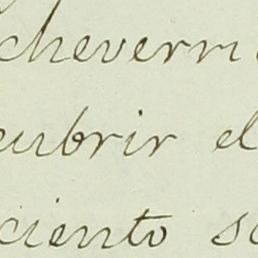 cheverri
cubrir el
ciento s